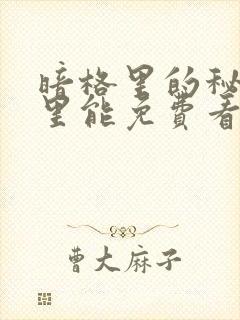 暗格里的秘
里能免费看
曹大麻子